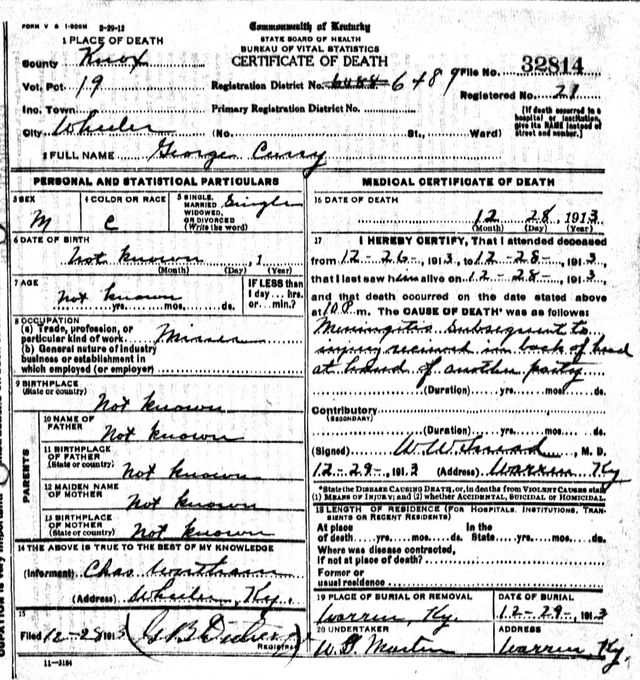 FORM V S 1-500M 2-29-12
Commonwealth of Kentucky
STATE BOARD OF HEALTH
BUREAU OF VITAL STATISTICS
CERTIFICATE OF DEATH
1 PLACE OF DEATH
County Knox
Vot. Pct. 19
Inc. Town
City Wheeler (No. St., Ward)
Registration District No. 6488 6489
Primary Registration District No.
File No. 32814
Registered No. 21
[If death occurred in a hospital or institution, give its NAME instead of street and number.]
2 FULL NAME George Curry
PERSONAL AND STATISTICAL PARTICULARS
3 SEX M
4 COLOR OR RACE C
5 SINGLE, MARRIED, WIDOWED, OR DIVORCED (Write the word) Single
6 DATE OF BIRTH
Not known, 1
(Month) (Day) (Year)
7 AGE
Not known
yrs. mos. ds.
IF LESS than 1 day... hrs. or... min.?
8 OCCUPATION
(a) Trade, profession, or particular kind of work Miner
(b) General nature of industry
business or establishment in
which employed (or employer)
9 BIRTHPLACE
(State or country) Not known
PARENTS
10 NAME OF FATHER Not known
11 BIRTHPLACE OF FATHER (State or country) Not known
12 MAIDEN NAME OF MOTHER Not known
13 BIRTHPLACE OF MOTHER (State or country) Not known
14 THE ABOVE IS TRUE TO THE BEST OF MY KNOWLEDGE
(Informant) Chas Wortham
(Address) Wheeler, Ky.
15
Filed 12-28 1913
REGISTRAR
11-3184
MEDICAL CERTIFICATE OF DEATH
16 DATE OF DEATH
12 28, 1913
(Month) (Day) (Year)
17 I HEREBY CERTIFY, That I attended deceased
from 12-26-, 1913, to 12-28-, 1913,
that I last saw him alive on 12-28-, 1913,
and that death occurred on the date stated above
at 10 m. The CAUSE OF DEATH* was as follows:
Meningitis subsequent to
injury received in back of head
at hand of another party
(Duration) yrs. mos. ds.
Contributory
(SECONDARY)
(Duration) yrs. mos. ds.
(Signed) W. W. Snead, M. D.
12-29-, 1913 (Address) Warren Ky
*State the DISEASE CAUSING DEATH, or, in deaths from VIOLENT CAUSES state
(1) MEANS OF INJURY; and (2) whether ACCIDENTAL, SUICIDAL or HOMICIDAL
18 LENGTH OF RESIDENCE (FOR HOSPITALS, INSTITUTIONS, TRANSIENTS OR RECENT RESIDENTS)
At place of death yrs. mos. ds. In the State yrs. mos. ds.
Where was disease contracted,
if not at place of death?
Former or
usual residence
19 PLACE OF BURIAL OR REMOVAL
Warren, Ky.
DATE OF BURIAL
12-29-, 1913
20 UNDERTAKER
W. G. Martin
ADDRESS
Warren, Ky